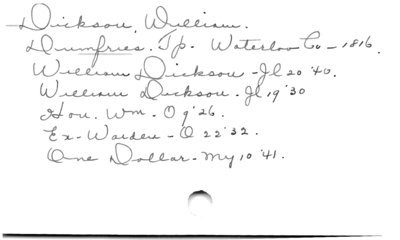 Dickson, William.
Dumfries. Tp. Waterloo Co - 1816.
William Dickson - Jl 20 '40.
William Dickson - Jl 19 '30
Hon. Wm. - O 9 '26.
Ex-Warden - O 22 '32.
One Dollar - My 10 '41.